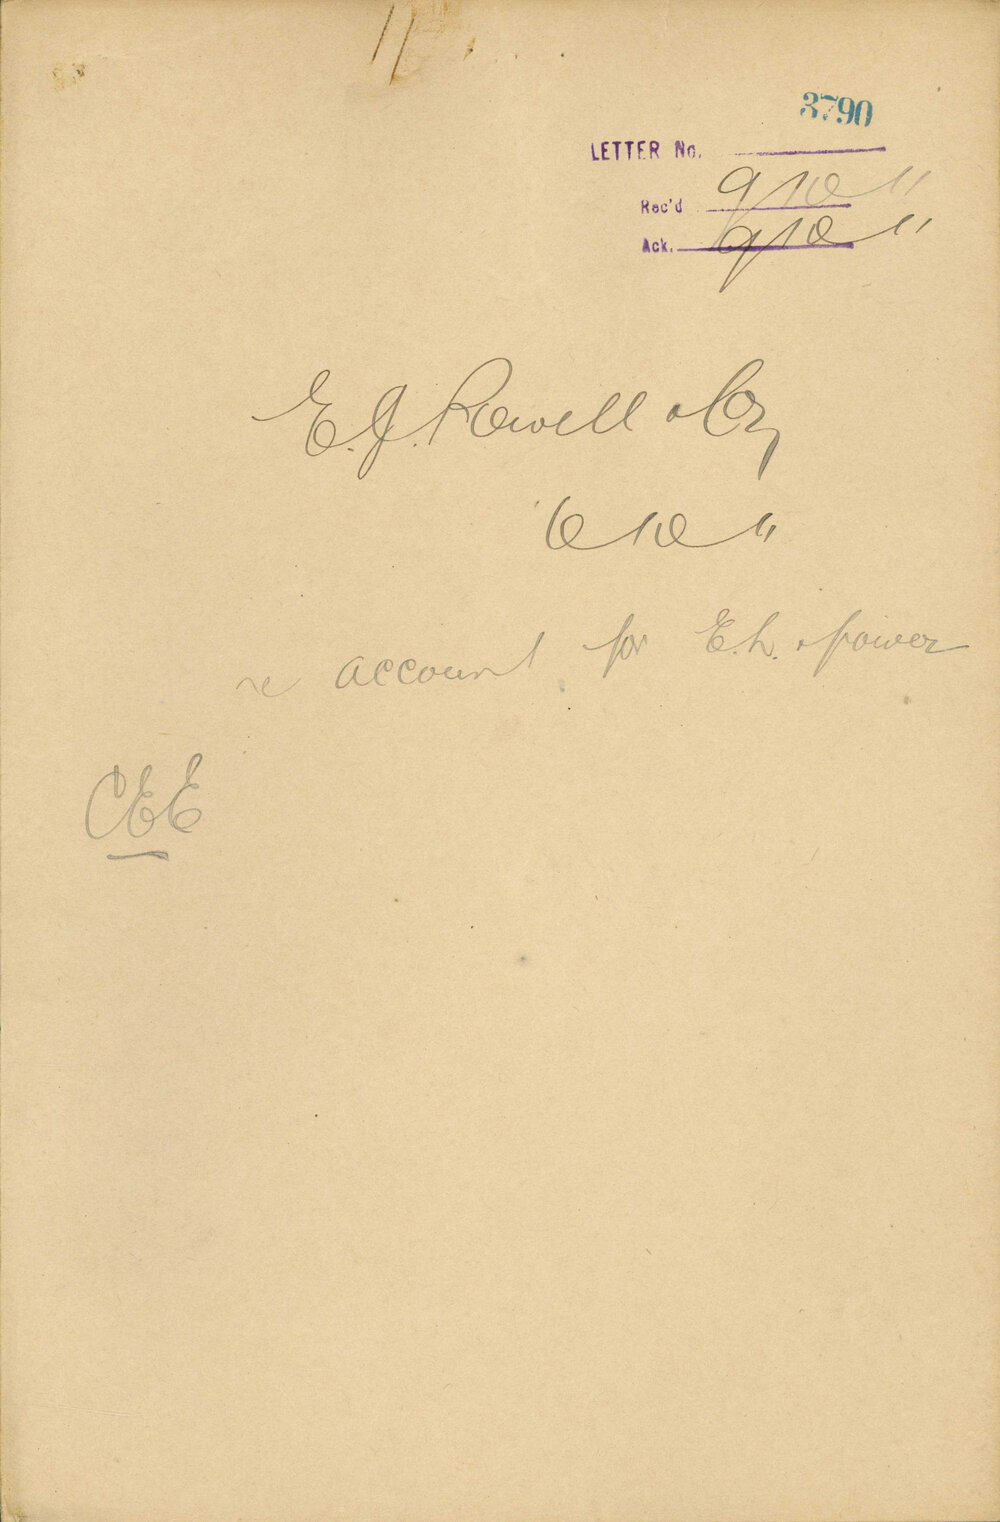 3790
LETTER No.
Rec'd 9/10/11
Ack. 9/10/11
E. J. Rowell & Co
6/10/11
re account for E.L. & power
CEE